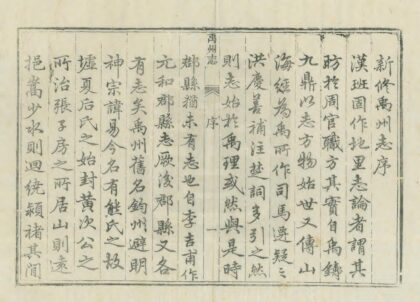 新修禹州志序
漢班固作地里志論者謂其
昉於周官職方其實自禹鑄
九鼎以志方物始世又傳山
海經為禹所作司馬遷疑之
洪慶善補注楚詞多引之然
則志始於禹理或然與是時
禹州志
序
一
郡縣猶未有志也自李吉甫作
元和郡縣志厥後郡縣又各
有志矣禹州舊名鈞州避明
神宗諱易今名有熊氏之故
墟夏后氏之始封黃次公之
所治張子房之所居山則遠
挹嵩少水則迴繞潁褚其間